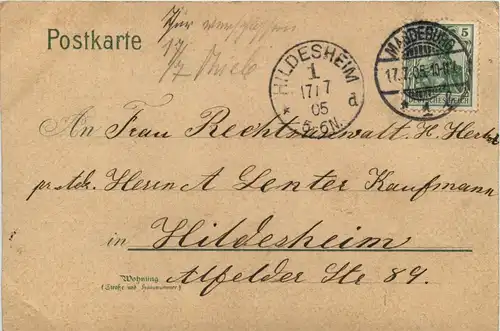 Postkarte
17/7
HILDESHEIM
1
17/7
05
5-6N.
* d
MAGDEBURG
17.7.05.10-11
* 1
5
An Frau Rechtsanwalt H.
pr. Adr. Herrn A Lenter Kaufmann
in Hildesheim
Wohnung
(Straße und Hausnummer)
Alfelder Ste 89.